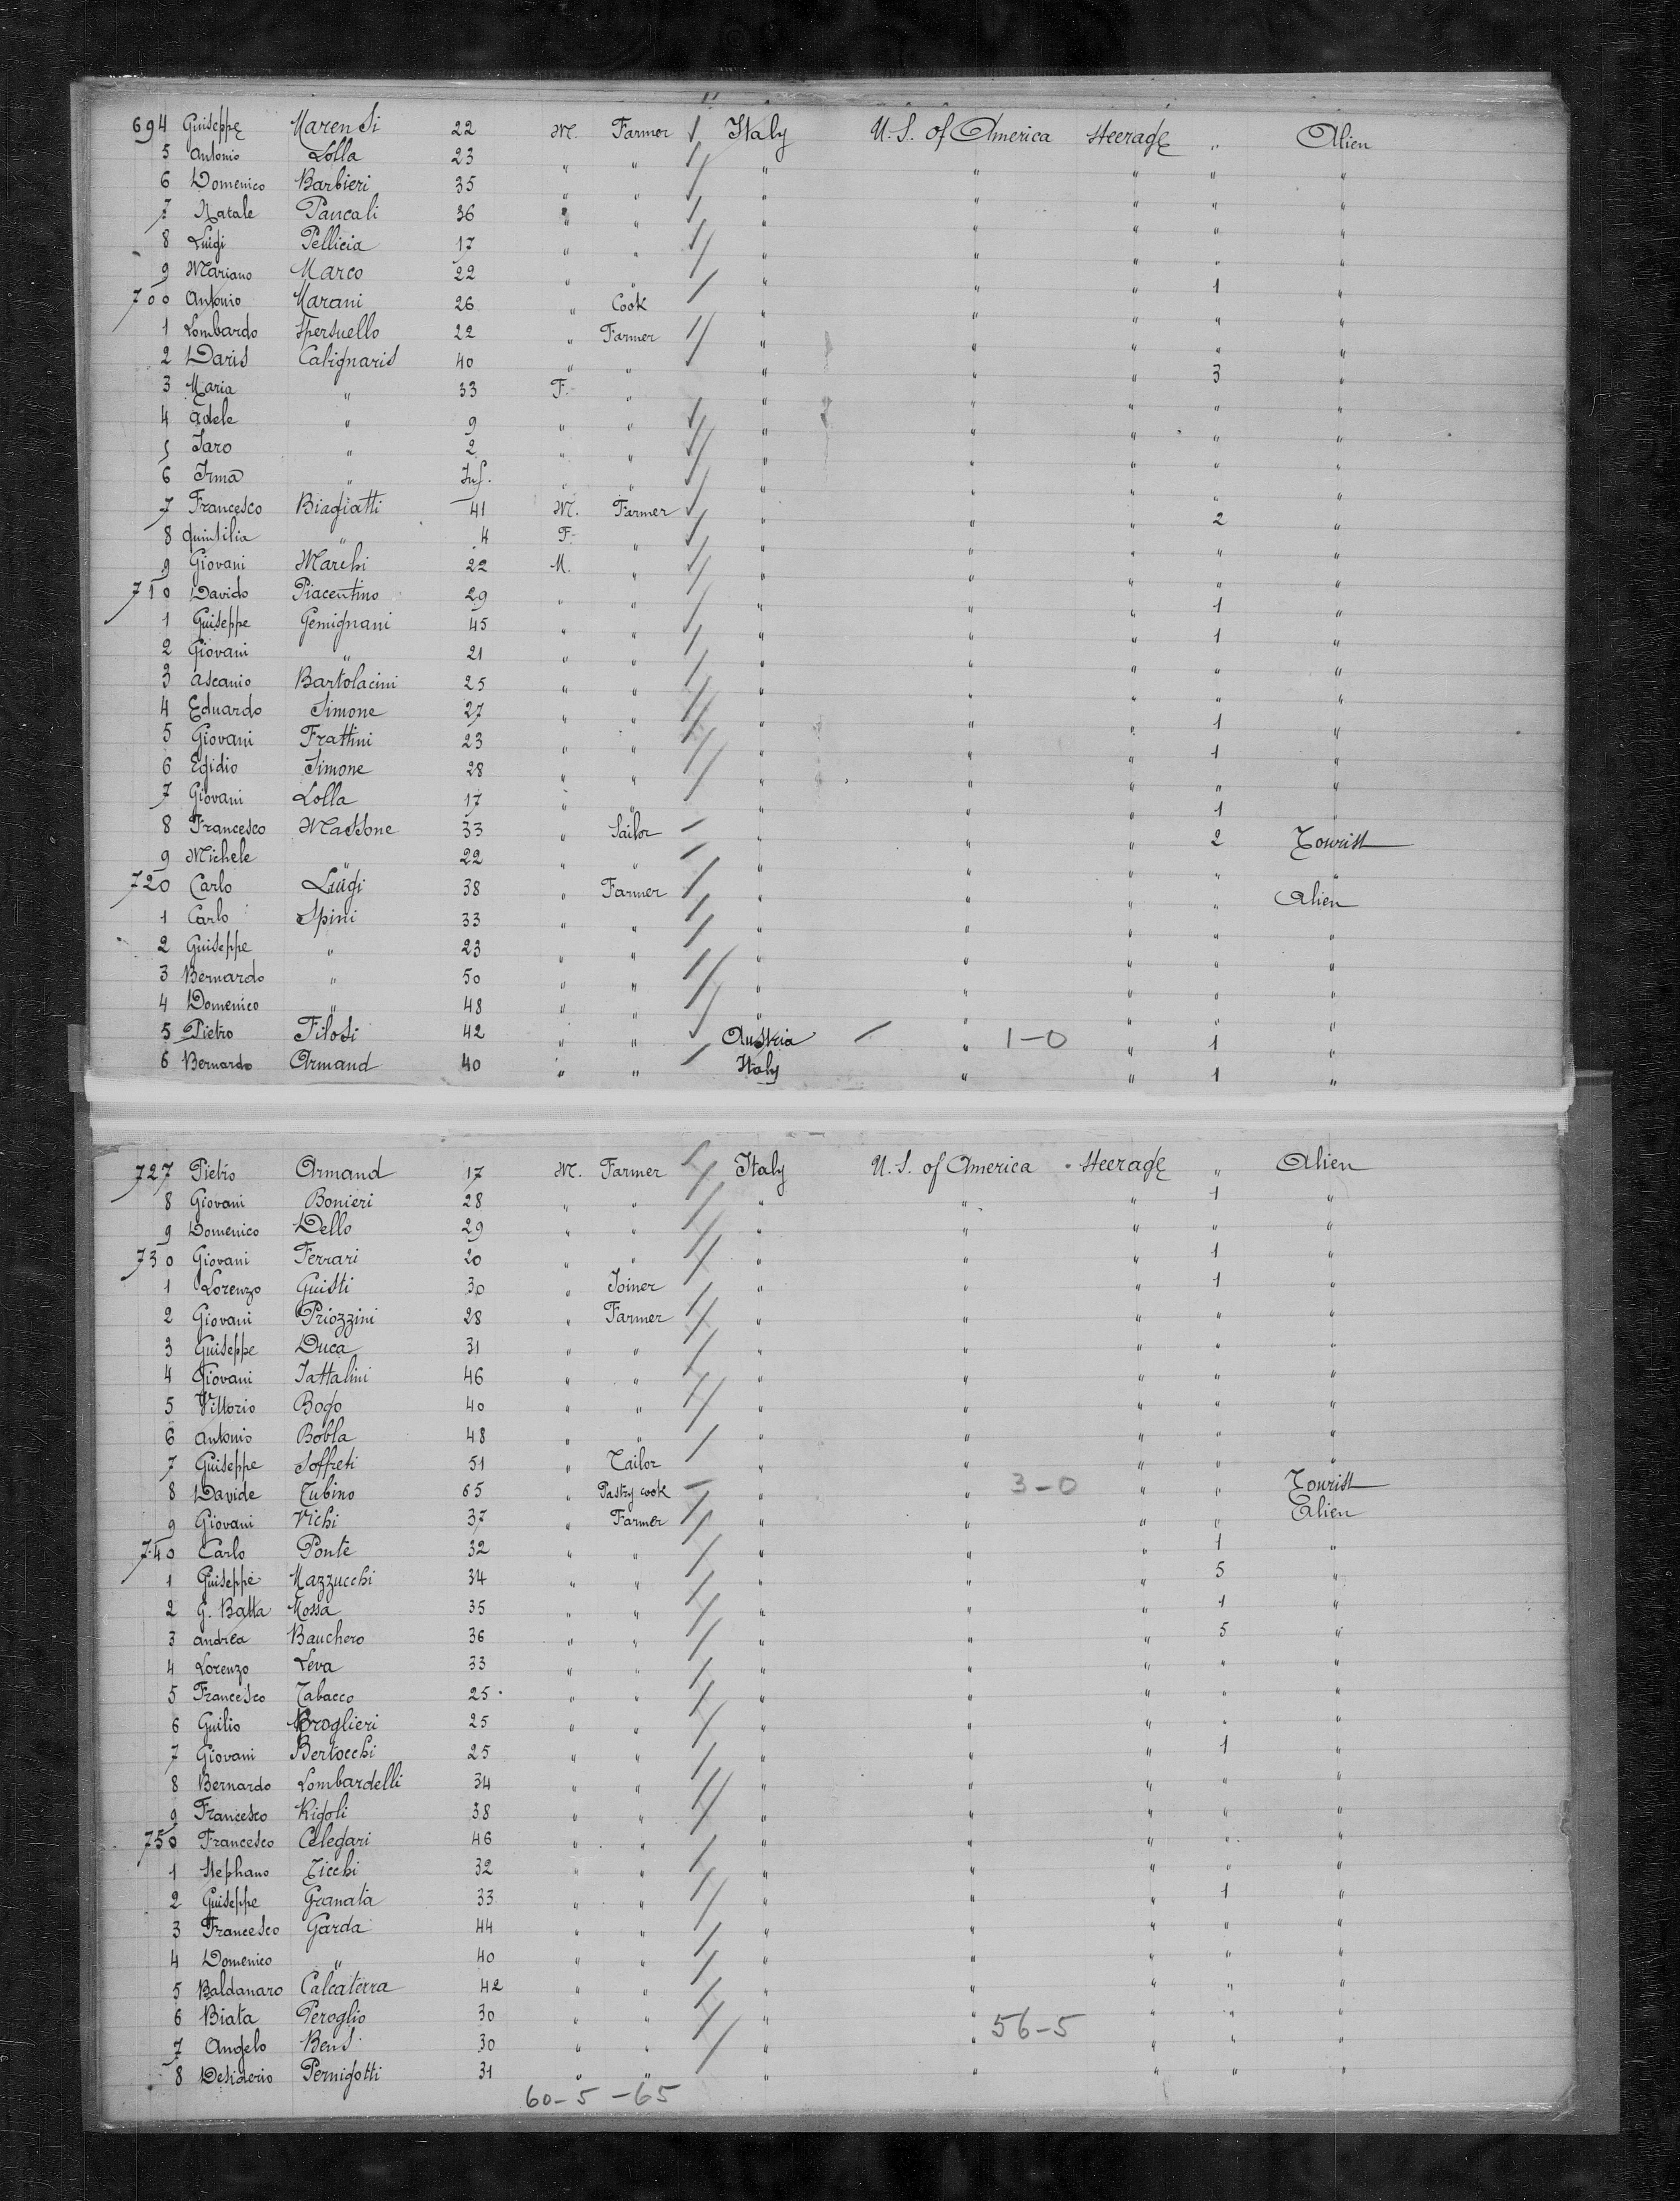 694 Guiseppe Marensi 22 M. Farmer Italy U.S. of America Steerage " Alien
5 Antonio Lolla 23 " " " " " " "
6 Domenico Barbieri 35 " " " " " " "
7 Natale Pancali 36 " " " " " " "
8 Luigi Pellicia 17 " " " " " " "
9 Mariano Marco 22 " " " " " 1 "
700 Antonio Marani 26 " Cook " " " " "
1 Lombardo Spersuello 22 " Farmer " " " " "
2 Daris Calignaris 40 " " " " " 3 "
3 Maria " 33 F. " " " " " "
4 Adele " 9 " " " " " " "
5 Jaro " 2 " " " " " " "
6 Irma " Inf. " " " " " " "
7 Francesco Biagiatti 41 M. Farmer " " " 2 "
8 Quintilia " 4 F. " " " " " "
9 Giovani Marchi 22 M. " " " " " "
710 Davido Piacentino 29 " " " " " 1 "
1 Guiseppe Gemignani 45 " " " " " 1 "
2 Giovani " 21 " " " " " " "
3 Ascanio Bartolacini 25 " " " " " " "
4 Eduardo Simone 27 " " " " " 1 "
5 Giovani Frattini 23 " " " " " 1 "
6 Egidio Simone 28 " " " " " " "
7 Giovani Lolla 17 " " " " " 1 "
8 Francesco Massone 33 " Sailor " " " 2 Tourist
9 Michele " 22 " " " " " " "
720 Carlo Luigi 38 " Farmer " " " " Alien
1 Carlo Spini 33 " " " " " " "
2 Guiseppe " 23 " " " " " " "
3 Bernardo " 50 " " " " " " "
4 Domenico " 48 " " " " " " "
5 Pietro Filosi 42 " " Austria " 1-0 " 1 "
6 Bernardo Armand 40 " " Italy " " 1 "
727 Pietro Armand 17 M. Farmer Italy U.S. of America Steerage " Alien
8 Giovani Bonieri 28 " " " " " 1 "
9 Domenico Dello 29 " " " " " " "
730 Giovani Ferrari 20 " " " " " 1 "
1 Lorenzo Guisti 30 " Joiner " " " 1 "
2 Giovani Priozzini 28 " Farmer " " " " "
3 Guiseppe Duca 31 " " " " " " "
4 Giovani Tattalini 46 " " " " " " "
5 Vittorio Bogo 40 " " " " " " "
6 Antonio Bobla 48 " " " " " " "
7 Guiseppe Soffreti 51 " Tailor " " " " "
8 Davide Tubino 65 " Pastry cook " " 3-0 " " Tourist
9 Giovani Vichi 37 " Farmer " " " " Alien
740 Carlo Ponte 32 " " " " " 1 "
1 Guiseppe Mazzucchi 34 " " " " " 5 "
2 G. Batta Mossa 35 " " " " " 1 "
3 Andrea Bauchero 36 " " " " " 5 "
4 Lorenzo Leva 33 " " " " " " "
5 Francesco Tabacco 25 " " " " " " "
6 Guilio Broglieri 25 " " " " " " "
7 Giovani Bertocchi 25 " " " " " 1 "
8 Bernardo Lombardelli 34 " " " " " " "
9 Francesco Rigoli 38 " " " " " " "
750 Francesco Celegari 46 " " " " " " "
1 Stephano Ticchi 32 " " " " " " "
2 Guiseppe Granata 33 " " " " " 1 "
3 Francesco Garda 44 " " " " " " "
4 Domenico " 40 " " " " " " "
5 Baldanaro Calcaterra 42 " " " " " " "
6 Biata Peroglio 30 " " " " " " "
7 Angelo Bens 30 " " " " 56-5 " " "
8 Desiderio Pernigotti 31 " " " " " " "
60-5-65